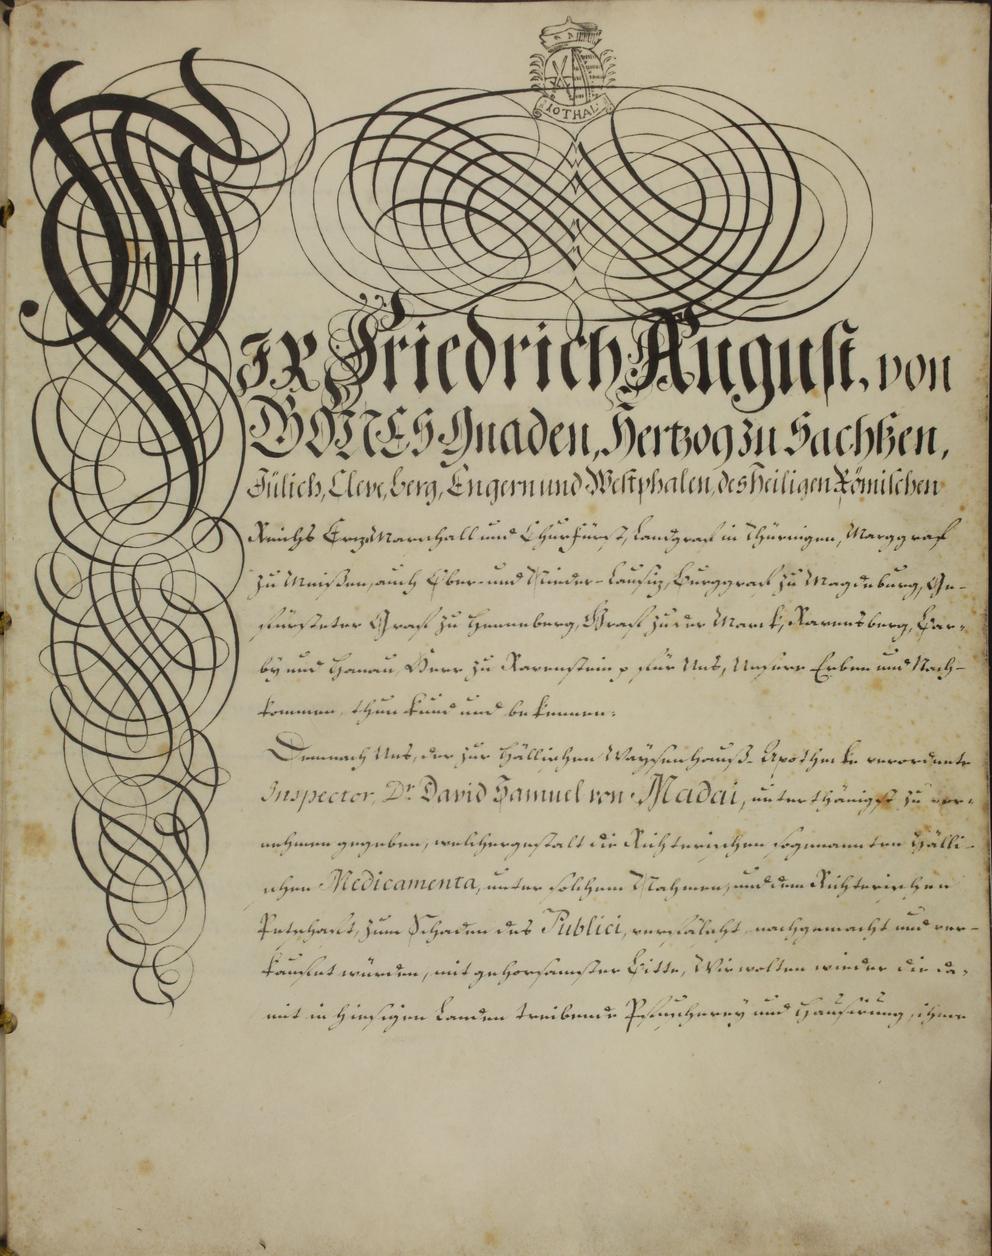 IOTHAL
WIR Friedrich August, von
GOTTES Gnaden, Hertzog zu Sachßen,
Jülich, Cleve, Berg, Engern und Westphalen, des Heiligen Römischen
Reichs Ertz-Marschall und Churfürst, Landgraf in Thüringen, Marggraf
zu Meißen, auch Ober- und Nieder-Lausitz, Burggraf zu Magdeburg, Ge-
fürsteter Graf zu Henneberg, Graf zu der Marck, Ravensberg, Bar-
by und Hanau, Herr zu Ravenstein p für Uns, Unsere Erben und Nach-
kommen, thun kund und bekennen:
Demnach Uns, der zur Hällischen Waysenhauß-Apothecke verordnete
Inspector, Dr. David Samuel von Madai, unterthänigst zu ver-
nehmen gegeben, welchergestalt die Richterischen sogenannten Hälli-
schen Medicamenta, unter solchem Nahmen, und dem Richterischen
Petschaft, zum Schaden des Publici, verfälscht, nachgemacht und ver-
kaufet würden, mit gehorsamster Bitte, Wir wolten wieder die da-
mit in hiesigen Landen treibende Pfuscherey und Hausirung, ihme